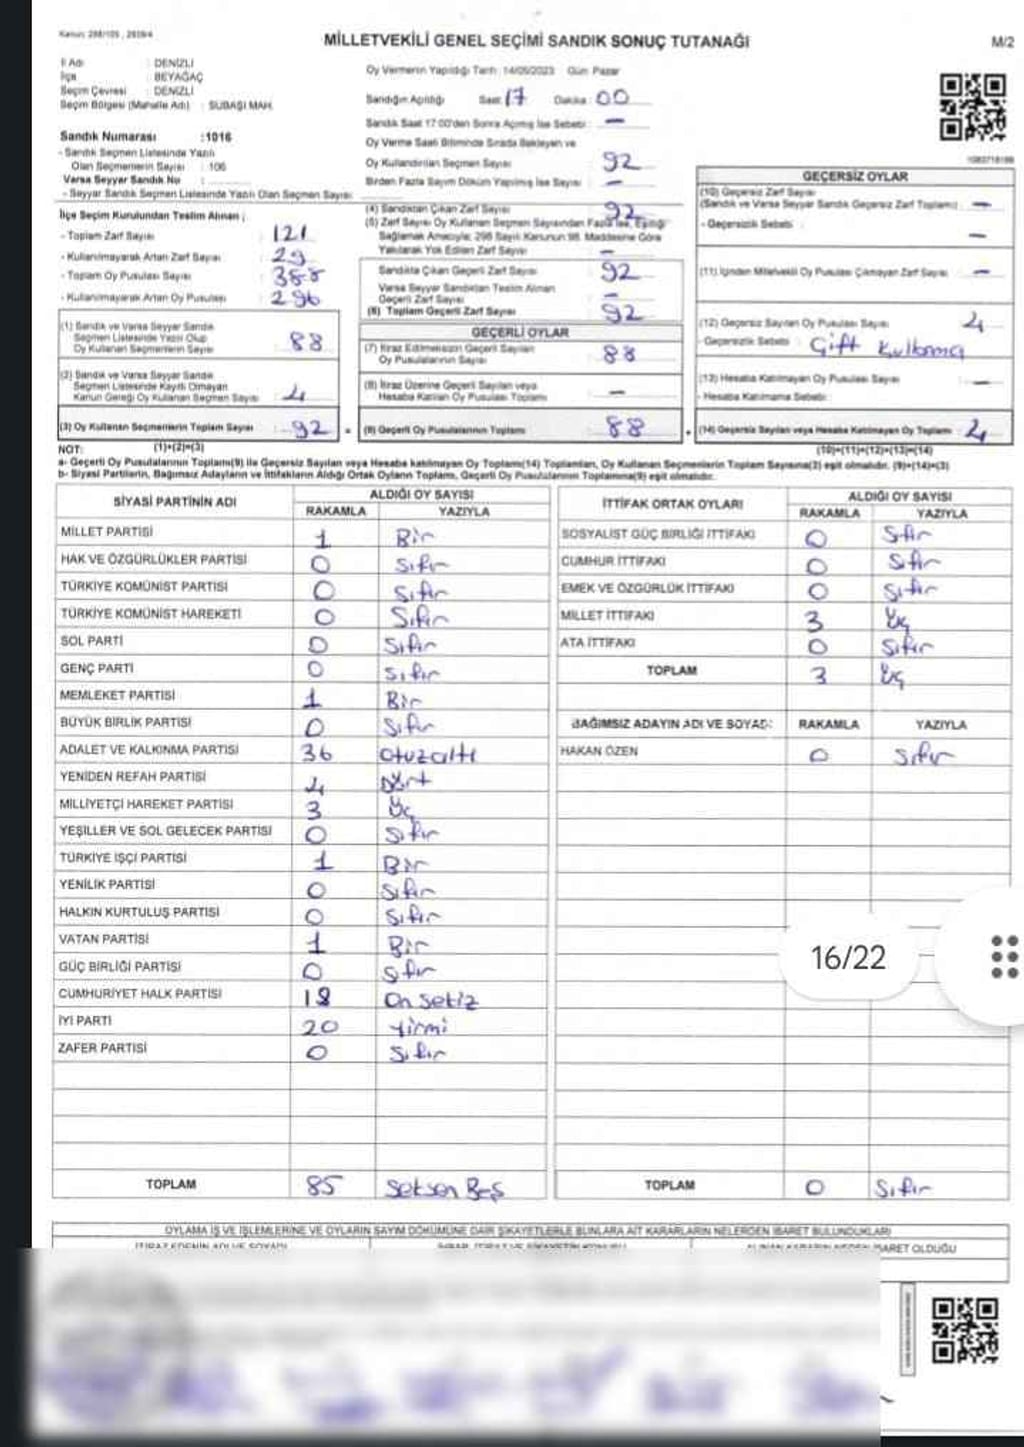 Kanun: 298/105, 2839/4
MİLLETVEKİLİ GENEL SEÇİMİ SANDIK SONUÇ TUTANAĞI
M/2
İl Adı : DENİZLİ
İlçe : BEYAĞAÇ
Seçim Çevresi : DENİZLİ
Seçim Bölgesi (Mahalle Adı) : SUBAŞI MAH.
Sandık Numarası : 1016
- Sandık Seçmen Listesinde Yazılı
Olan Seçmenlerin Sayısı : 106
Varsa Seyyar Sandık No :
- Seyyar Sandık Seçmen Listesinde Yazılı Olan Seçmen Sayısı
Oy Vermenin Yapıldığı Tarih : 14/05/2023 Gün: Pazar
Sandığın Açıldığı Saat : 17 Dakika : 00
Sandık Saat 17:00'den Sonra Açılmış İse Sebebi : —
Oy Verme Saati Bitiminde Sırada Bekleyen ve
Oy Kullandırılan Seçmen Sayısı : 92
Birden Fazla Sayım Döküm Yapılmış İse Sayısı : —
İlçe Seçim Kurulundan Teslim Alınan ;
- Toplam Zarf Sayısı : 121
- Kullanılmayarak Artan Zarf Sayısı : 29
- Toplam Oy Pusulası Sayısı : 388
- Kullanılmayarak Artan Oy Pusulası : 296
(1) Sandık ve Varsa Seyyar Sandık
Seçmen Listesinde Yazılı Olup
Oy Kullanan Seçmenlerin Sayısı : 88
(2) Sandık ve Varsa Seyyar Sandık
Seçmen Listesinde Kayıtlı Olmayan
Kanun Gereği Oy Kullanan Seçmen Sayısı : 4
(3) Oy Kullanan Seçmenlerin Toplam Sayısı : 92 =
(4) Sandıktan Çıkan Zarf Sayısı : 92
(5) Zarf Sayısı Oy Kullanan Seçmen Sayısından Fazla İse, Eşitliği
Sağlamak Amacıyla; 298 Sayılı Kanunun 98. Maddesine Göre
Yakılarak Yok Edilen Zarf Sayısı : —
Sandıkta Çıkan Geçerli Zarf Sayısı : 92
Varsa Seyyar Sandıktan Teslim Alınan
Geçerli Zarf Sayısı : —
(6) Toplam Geçerli Zarf Sayısı : 92
GEÇERLİ OYLAR
(7) İtiraz Edilmeksizin Geçerli Sayılan
Oy Pusulalarının Sayısı : 88
(8) İtiraz Üzerine Geçerli Sayılan veya
Hesaba Katılan Oy Pusulası Toplamı : —
(9) Geçerli Oy Pusulalarının Toplamı : 88 +
GEÇERSİZ OYLAR
(10) Geçersiz Zarf Sayısı
(Sandık ve Varsa Seyyar Sandık Geçersiz Zarf Toplamı) : —
- Geçersizlik Sebebi : —
(11) İçinden Milletvekili Oy Pusulası Çıkmayan Zarf Sayısı : —
(12) Geçersiz Sayılan Oy Pusulası Sayısı : 4
- Geçersizlik Sebebi : Çift Kullanma
(13) Hesaba Katılmayan Oy Pusulası Sayısı : —
- Hesaba Katılmama Sebebi :
(14) Geçersiz Sayılan veya Hesaba Katılmayan Oy Toplamı : 4
NOT: (1)+(2)=(3) (10)+(11)+(12)+(13)=(14)
a- Geçerli Oy Pusulalarının Toplamı(9) ile Geçersiz Sayılan veya Hesaba katılmayan Oy Toplamı(14) Toplamları, Oy Kullanan Seçmenlerin Toplam Sayısına(3) eşit olmalıdır. (9)+(14)=(3)
b- Siyasi Partilerin, Bağımsız Adayların ve İttifakların Aldığı Ortak Oyların Toplamı, Geçerli Oy Pusulalarının Toplamına(9) eşit olmalıdır.
SİYASİ PARTİNİN ADI ALDIĞI OY SAYISI
RAKAMLA YAZIYLA
MİLLET PARTİSİ 1 Bir
HAK VE ÖZGÜRLÜKLER PARTİSİ 0 Sıfır
TÜRKİYE KOMÜNİST PARTİSİ 0 Sıfır
TÜRKİYE KOMÜNİST HAREKETİ 0 Sıfır
SOL PARTİ 0 Sıfır
GENÇ PARTİ 0 Sıfır
MEMLEKET PARTİSİ 1 Bir
BÜYÜK BİRLİK PARTİSİ 0 Sıfır
ADALET VE KALKINMA PARTİSİ 36 Otuzaltı
YENİDEN REFAH PARTİSİ 4 Dört
MİLLİYETÇİ HAREKET PARTİSİ 3 Üç
YEŞİLLER VE SOL GELECEK PARTİSİ 0 Sıfır
TÜRKİYE İŞÇİ PARTİSİ 1 Bir
YENİLİK PARTİSİ 0 Sıfır
HALKIN KURTULUŞ PARTİSİ 0 Sıfır
VATAN PARTİSİ 1 Bir
GÜÇ BİRLİĞİ PARTİSİ 0 Sıfır
CUMHURİYET HALK PARTİSİ 18 On sekiz
İYİ PARTİ 20 Yirmi
ZAFER PARTİSİ 0 Sıfır
TOPLAM 85 Seksen Beş
İTTİFAK ORTAK OYLARI ALDIĞI OY SAYISI
RAKAMLA YAZIYLA
SOSYALİST GÜÇ BİRLİĞİ İTTİFAKI 0 Sıfır
CUMHUR İTTİFAKI 0 Sıfır
EMEK VE ÖZGÜRLÜK İTTİFAKI 0 Sıfır
MİLLET İTTİFAKI 3 Üç
ATA İTTİFAKI 0 Sıfır
TOPLAM 3 Üç
BAĞIMSIZ ADAYIN ADI VE SOYADI RAKAMLA YAZIYLA
HAKAN ÖZEN 0 Sıfır
16/22
TOPLAM 0 Sıfır
OYLAMA İŞ VE İŞLEMLERİNE VE OYLARIN SAYIM DÖKÜMÜNE DAİR ŞİKAYETLERLE BUNLARA AİT KARARLARIN NELERDEN İBARET BULUNDUKLARI